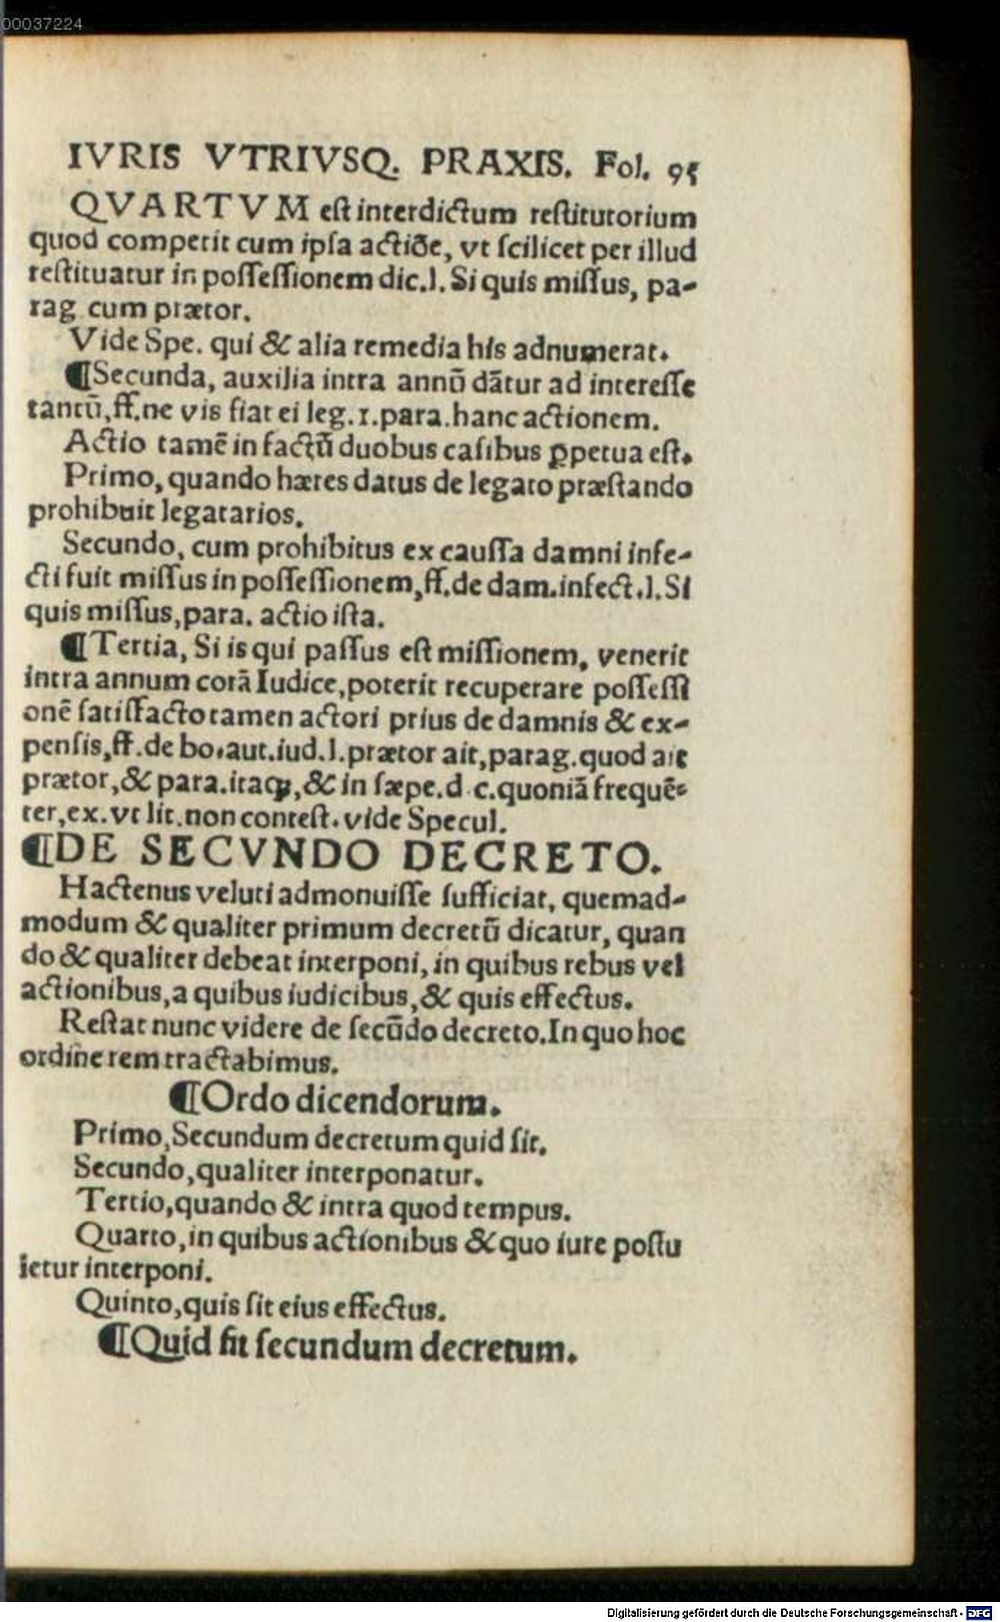 00037224
IVRIS VTRIVSQ. PRAXIS. Fol. 95
QVARTVM eſt interdictum reſtitutorium
quod competit cum ipſa actiõe, vt ſcilicet per illud
reſtituatur in poſſeſſionem dic.l. Si quis miſſus, pa-
rag cum prætor.
Vide Spe. qui & alia remedia his adnumerat.
¶Secunda, auxilia intra annũ dãtur ad intereſſe
tantũ, ff. ne vis fiat ei leg. 1. para. hanc actionem.
Actio tamẽ in factũ duobus caſibus ꝑpetua eſt.
Primo, quando hæres datus de legato præſtando
prohibuit legatarios.
Secundo, cum prohibitus ex cauſſa damni infe-
cti fuit miſſus in poſſeſſionem, ff. de dam. infect. l. Si
quis miſſus, para. actio iſta.
¶Tertia, Si is qui paſſus eſt miſſionem, venerit
intra annum corã Iudice, poterit recuperare poſſeſſi
onẽ ſatiſfacto tamen actori prius de damnis & ex-
penſis, ff. de bo. aut. iud. l. prætor ait, parag. quod ait
prætor, & para. itaqꝫ, & in ſæpe. d c. quoniã frequẽ-
ter, ex. vt lit. non conteſt. vide Specul.
¶DE SECVNDO DECRETO.
Hactenus veluti admonuiſſe ſufficiat, quemad-
modum & qualiter primum decretũ dicatur, quan
do & qualiter debeat interponi, in quibus rebus vel
actionibus, a quibus iudicibus, & quis effectus.
Reſtat nunc videre de ſecũdo decreto. In quo hoc
ordine rem tractabimus.
¶Ordo dicendorum.
Primo, Secundum decretum quid ſit.
Secundo, qualiter interponatur.
Tertio, quando & intra quod tempus.
Quarto, in quibus actionibus & quo iure poſtu
letur interponi.
Quinto, quis ſit eius effectus.
¶Quid ſit ſecundum decretum.
Digitalisierung gefördert durch die Deutsche Forschungsgemeinschaft - DFG